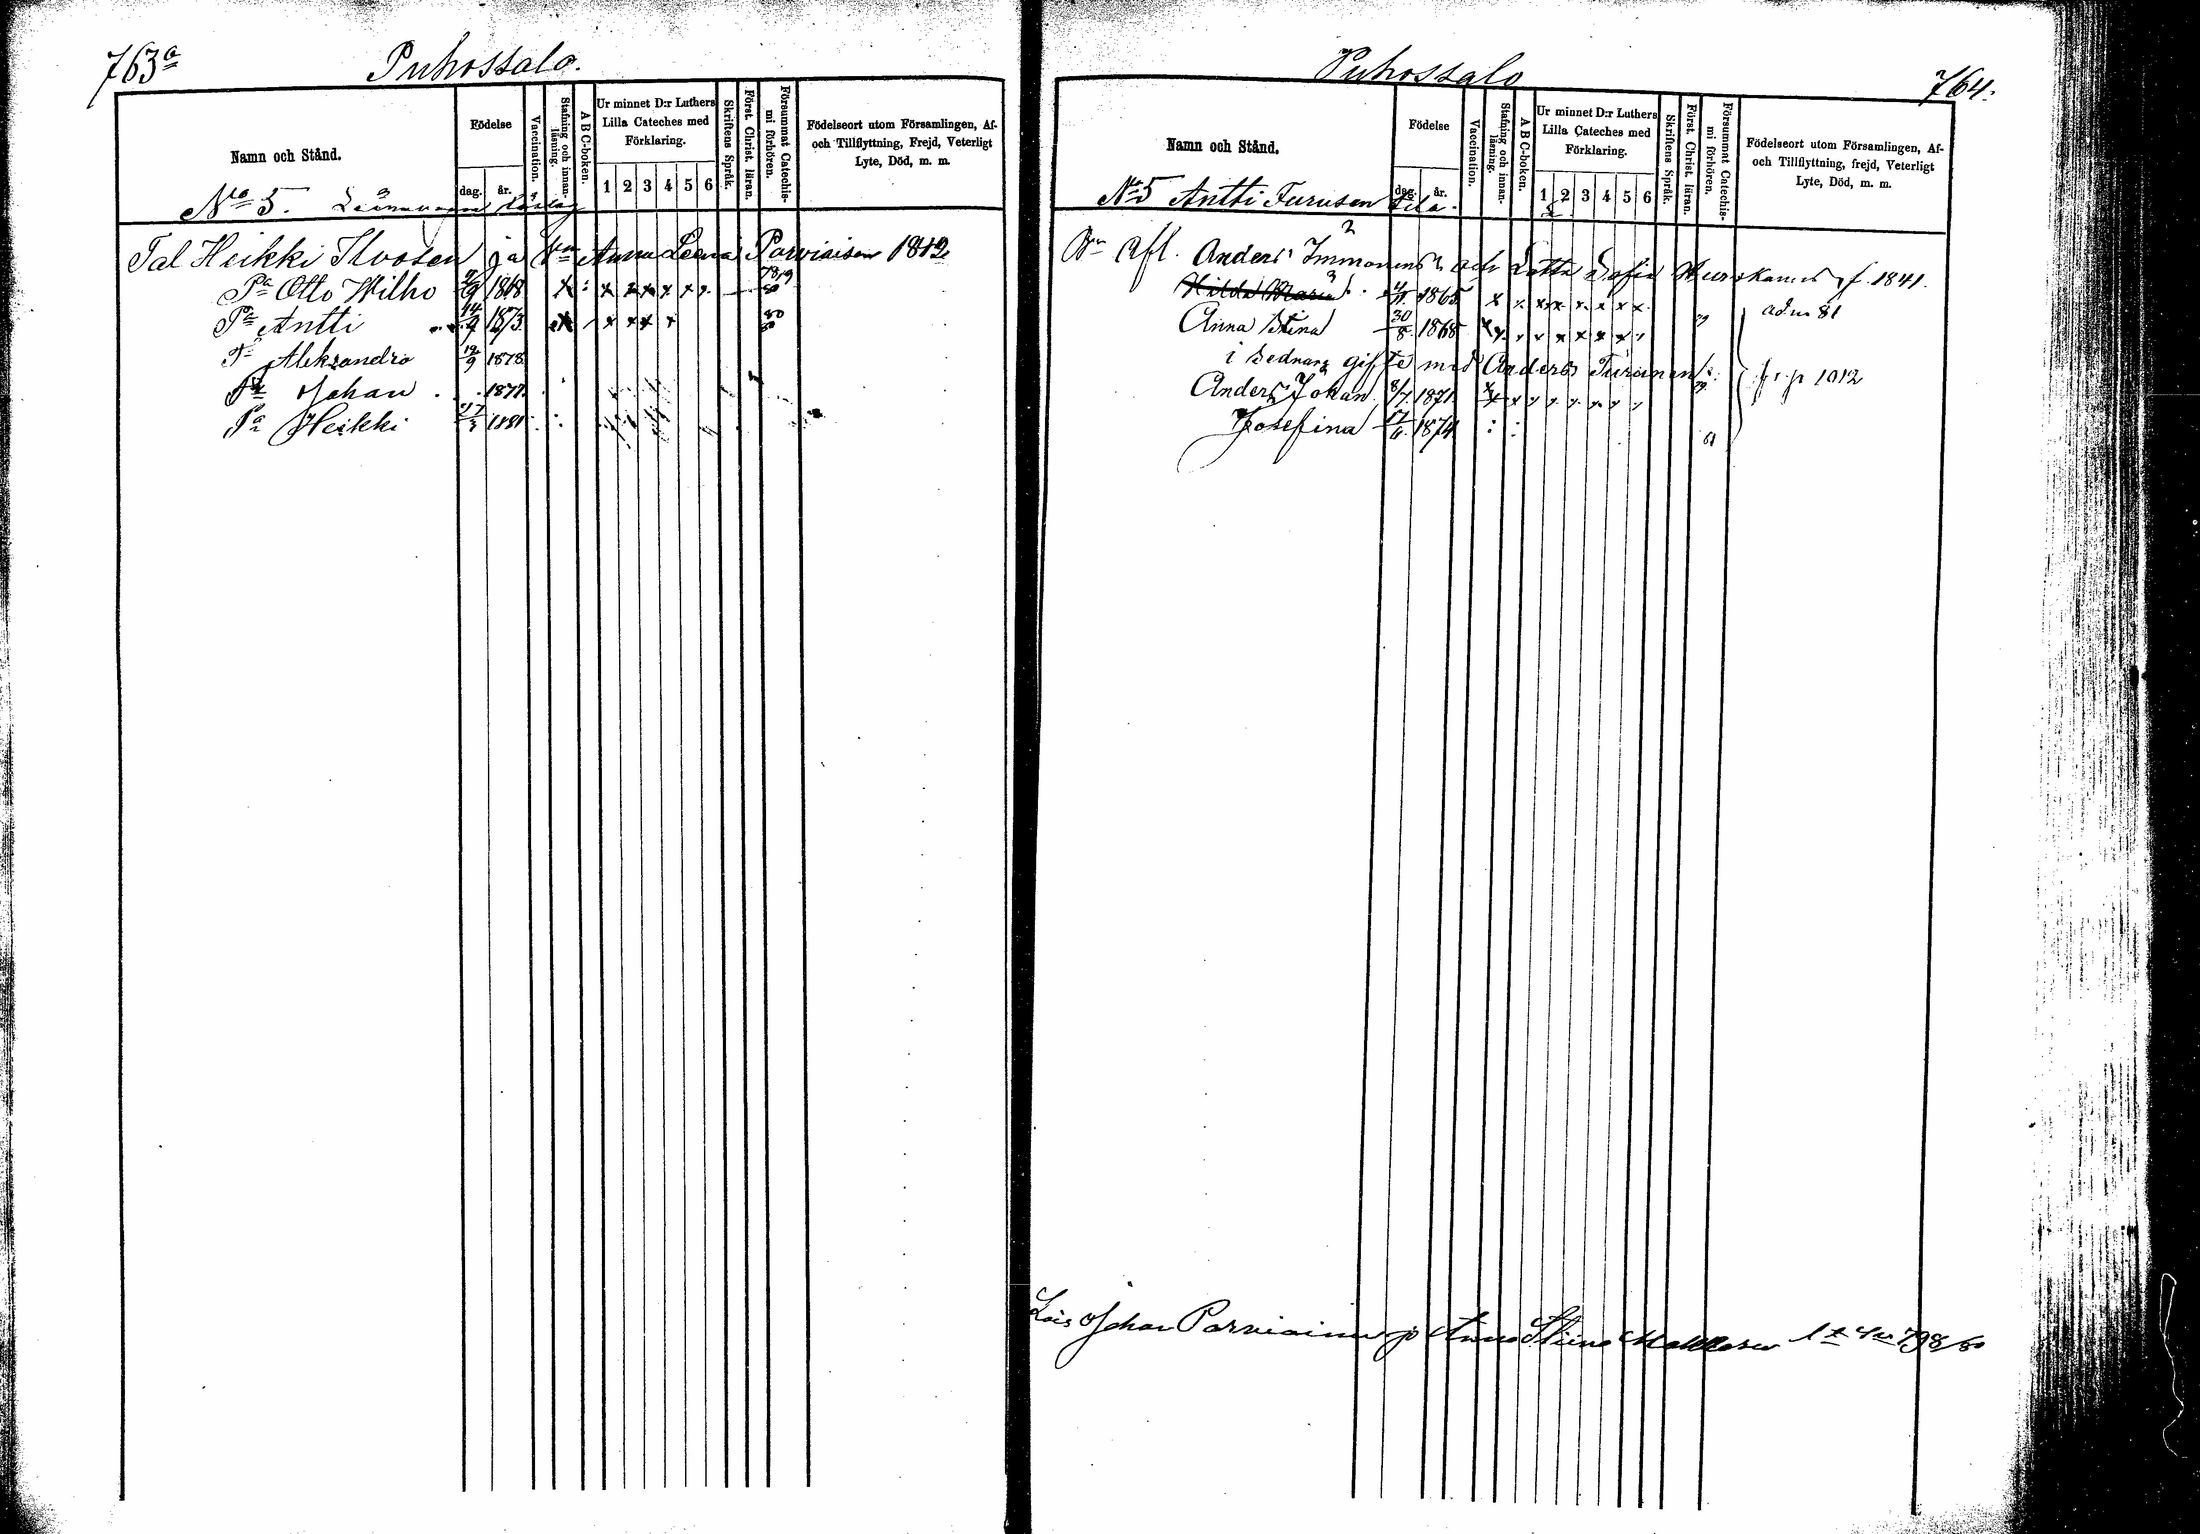 763a
Puhossalo.
Namn och Stånd.
Födelse
dag.
år.
Vaccination.
Stafning och innan-läsning.
A B C-boken.
Ur minnet D:r Luthers
Lilla Cateches med
Förklaring.
1 2 3 4 5 6
Skriftens Språk.
Först. Christ. läran.
Försummat Catechis-mi förhören.
Födelseort utom Församlingen, Af-
och Tillflyttning, Frejd, Veterligt
Lyte, Död, m. m.
No 5.
Tal Heikki Ilvosen ja Anna Leena Parviaisen 1842
Pa Otto Wilho 9 1868 78,79 80
Pa Antti 1873 80
Aleksandra 19/9 1878
Johan 1877
Pa Heikki 1881
Puhossalo
764.
Namn och Stånd.
Födelse
dag.
år.
Vaccination.
Stafning och innan-läsning.
A B C-boken.
Ur minnet D:r Luthers
Lilla Cateches med
Förklaring.
1 2 3 4 5 6
Skriftens Språk.
Först. Christ. läran.
Försummat Catechis-mi förhören.
Födelseort utom Församlingen, Af-
och Tillflyttning, frejd, Veterligt
Lyte, Död, m. m.
No 5 Antti Turusen tila.
Afl. Anders Immonens och Lotta Sofia f. 1841.
Hilda Maria 1865 adm 81
Anna Stina 30/8 1868
gifte med Anders Turunen
Anders Johan 8/7 1871 1012
Josefina 17/6 1874
Lois Johan Parviainen ja Anna Stiina 798/80